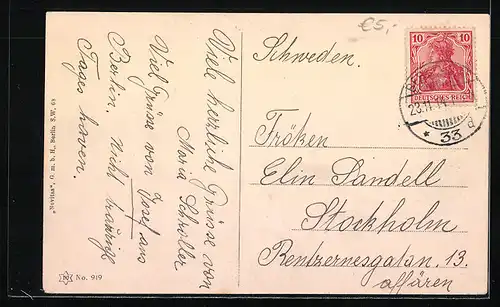 €5,-
Viele herzliche Grüsse von
Maria Schroller
Viel Grüsse von Josef aus
Berlin. Nicht traurige
Tages haven.
"Novitas", G. m. b. H., Berlin S.W. 68
No. 919
Schweden.
10 10
DEUTSCHES REICH
23.11.
* 33
Fröken
Elin Sandell
Stockholm
Rentzernesgatan. 13.
affären